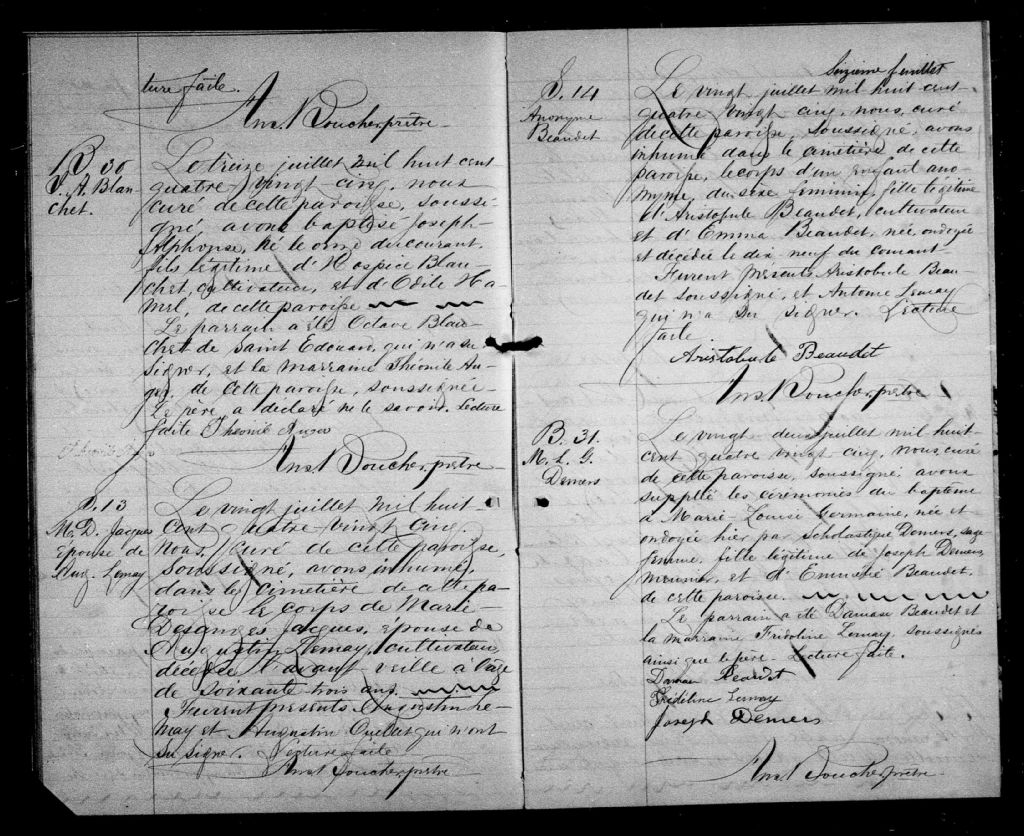 ture faite.
Ans. Boucher, prêtre
B 30
J. A. Blan-
chet.
Le treize juillet mil huit cent
quatre-vingt-cinq, nous
curé de cette paroisse, soussi-
gné, avons baptisé Joseph-
Alphonse, né le onze du courant,
fils légitime d'Hospice Blan-
chet, cultivateur, et d'Odile Ha-
mel, de cette paroisse
Le parrain a été Octave Blan-
chet de Saint Edouard, qui n'a su
signer, et la marraine Théonile Au-
ger, de cette paroisse, soussignée
Le père a déclaré ne le savoir. Lecture
faite Théonile Auger
Ans. Boucher, prêtre
S. 13
M. D. Jacques
épouse de
Aug. Lemay
Le vingt juillet mil huit-
cent quatre-vingt cinq.
Nous, curé de cette paroisse,
soussigné, avons inhumé,
dans le cimetière de cette pa-
roisse le corps de Marie-
Desanges Jacques, épouse de
Augustin Lemay, cultivateur,
décédée l'avant-veille à l'âge
de soixante-trois ans.
Furent présents Augustin Le-
may et Augustin Ouellet qui n'ont
su signer. Lecture faite
Ans. Boucher, prêtre
Seizième feuillet
S. 14
Anonyme
Beaudet
Le vingt juillet mil huit cent
quatre vingt cinq, nous, curé
de cette paroisse, soussigné, avons
inhumé dans le cimetière de cette
paroisse, le corps d'un enfant ano-
nyme, du sexe féminin, fille légitime
d'Aristobule Beaudet, cultivateur
et d'Emma Beaudet, née ondoyée
et décédée le dix neuf du courant
Furent présents Aristobule Beau-
det soussigné, et Antoine Lemay
qui n'a su signer. Lecture
faite
Aristobule Beaudet
Ans. Boucher, prêtre
B. 31.
M. L. G.
Demers
Le vingt deux juillet mil huit-
cent quatre vingt cinq, nous, curé
de cette paroisse, soussigné, avons
supplée les cérémonies du baptême
à Marie-Louise Germaine, née et
ondoyée hier par Scholastique Demers, sage
femme, fille légitime de Joseph Demers,
meunier, et d'Emérentie Beaudet,
de cette paroisse.
Le parrain a été Damase Beaudet et
la marraine Fridoline Lemay, soussignés
ainsi que le père. Lecture faite.
Damase Beaudet
Fridoline Lemay
Joseph Demers
Ans. Boucher, prêtre